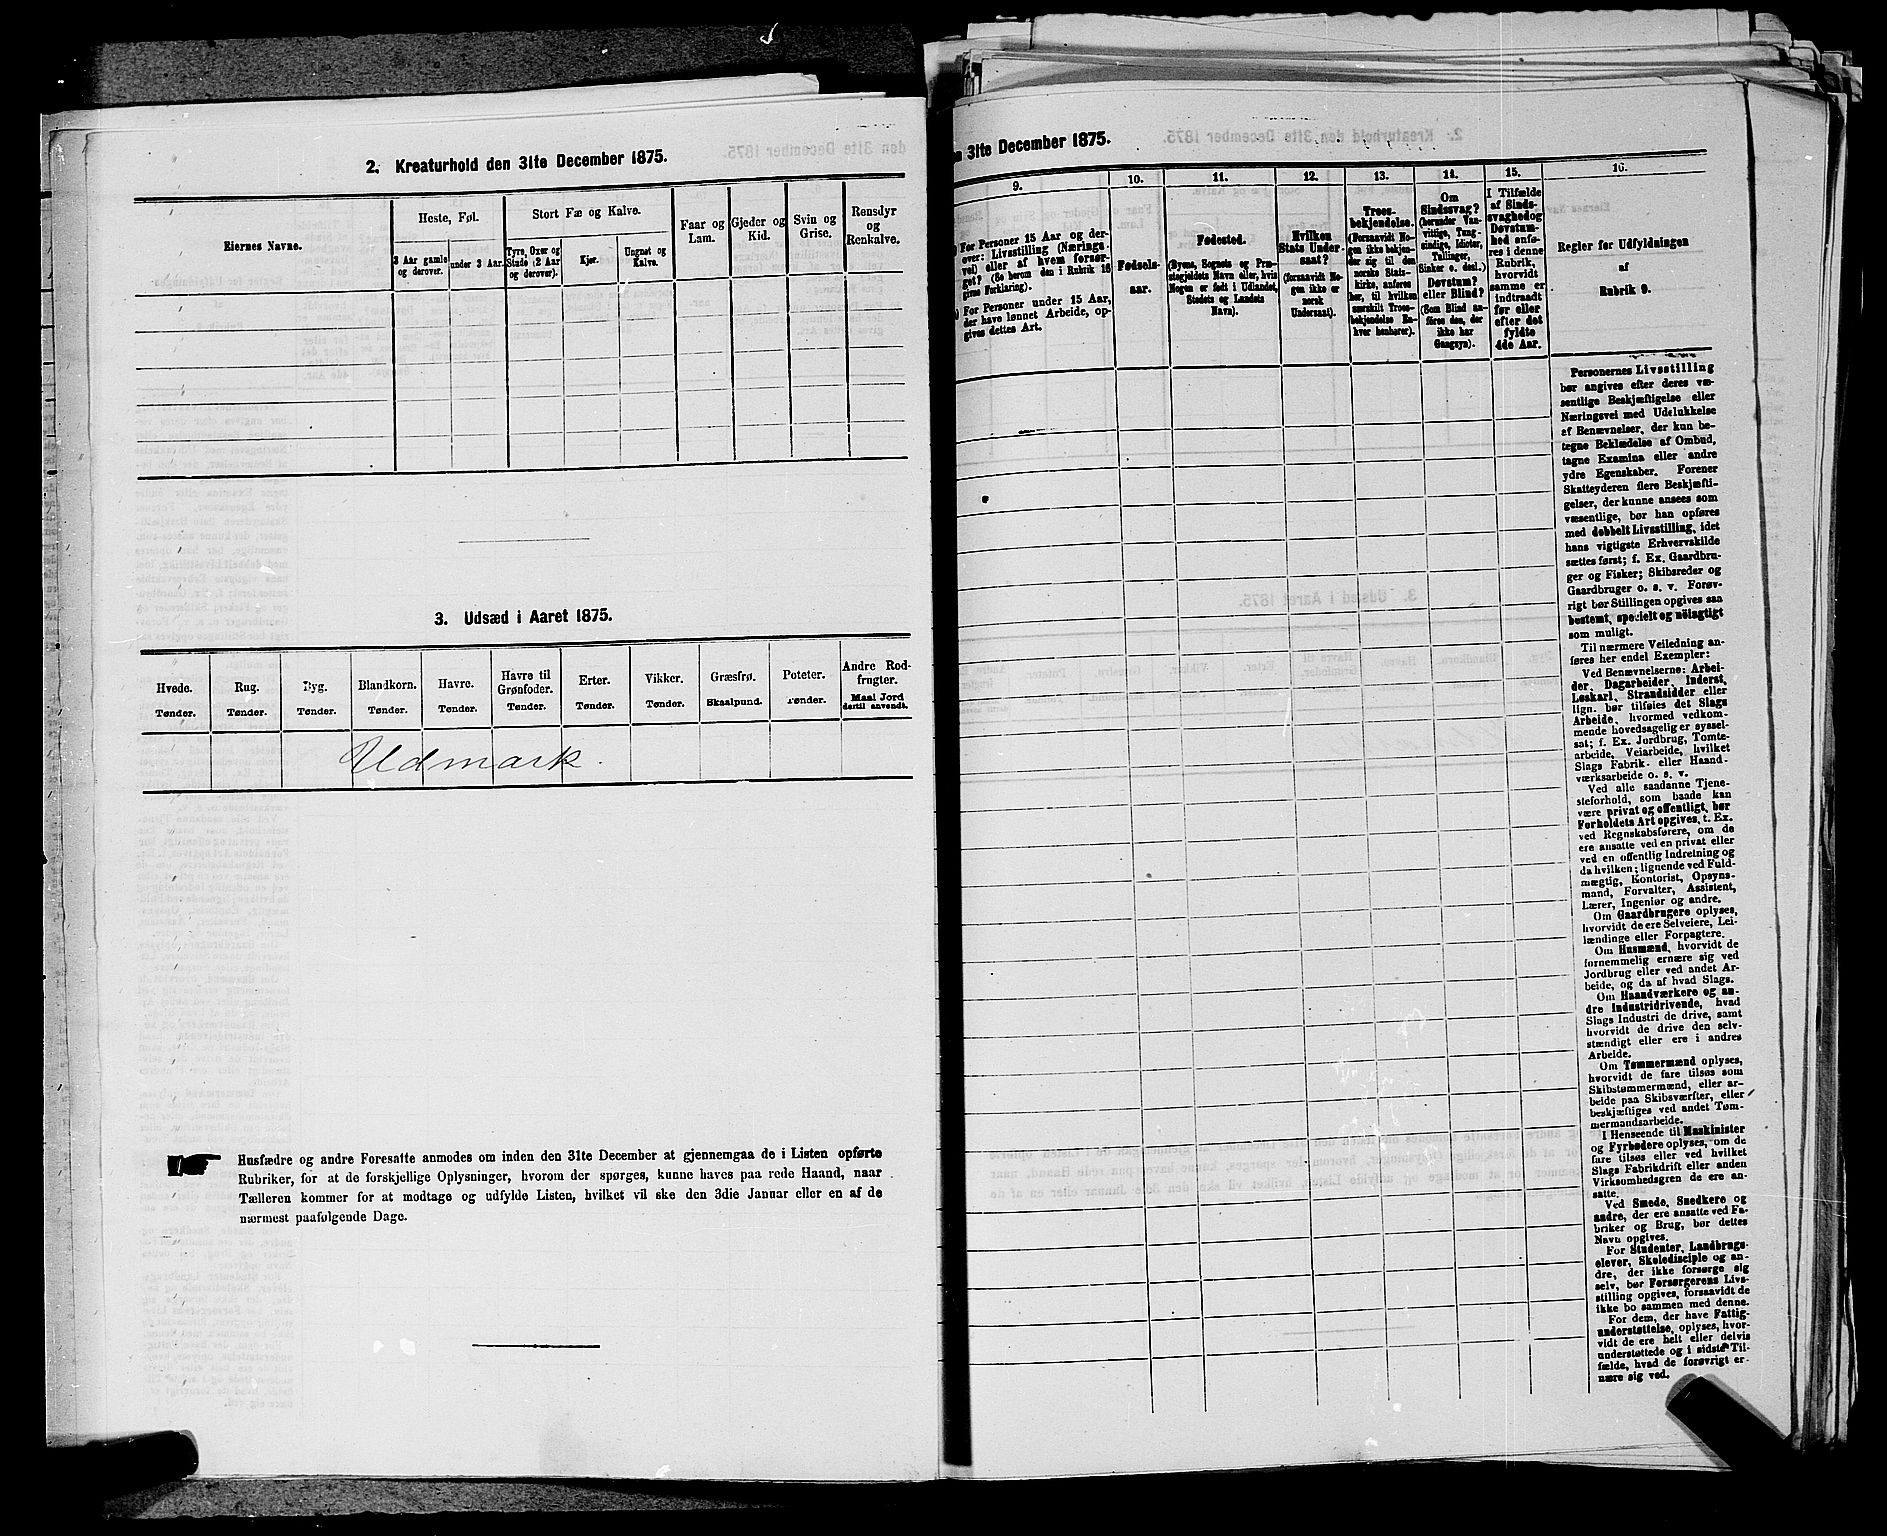 2. Kreaturhold den 31te December 1875.
Eiernes Navne.
Heste, Føl.
3 Aar gamle og derover.
under 3 Aar.
Stort Fæ og Kalve.
Tyre, Oxer og Stude (2 Aar og derover).
Kjør.
Ungnøt og Kalve.
Faar og Lam.
Gjeder og Kid.
Svin og Grise.
Rensdyr og Renkalve.
3. Udsæd i Aaret 1875.
Hvede.
Tønder.
Rug.
Tønder.
Byg.
Tønder.
Blandkorn.
Tønder.
Havre.
Tønder.
Havre til Grønfoder.
Tønder.
Erter.
Tønder.
Vikker.
Tønder.
Græsfrø.
Skaalpund.
Poteter.
Tønder.
Andre Rodfrugter.
Maal Jord dertil anvendt.
Udmark.
Husfædre og andre Foresatte anmodes om inden den 31te December at gjennemgaa de i Listen opførte
Rubriker, for at de forskjellige Oplysninger, hvorom der spørges, kunne haves paa rede Haand, naar
Tælleren kommer for at modtage og udfylde Listen, hvilket vil ske den 3die Januar eller en af de
nærmest paafølgende Dage.
31te December 1875.
9.
For Personer 15 Aar og derover: Livsstilling (Næringsvei) eller af hvem forsørget? (Se herom den i Rubrik 16 givne Forklaring).
For Personer under 15 Aar, der have lønnet Arbeide, opgives dettes Art.
10.
Fødselsaar.
11.
Fødested.
(Byens, Sognets og Præstegjeldets Navn eller, hvis Nogen er født i Udlandet, Stedets og Landets Navn).
12.
Hvilken Stats Undersaat?
(forsaavidt Nogen ikke er norsk Undersaat).
13.
Troesbekjendelse.
(Forsaavidt Nogen ikke bekjender sig til den norske Statskirke, anføres her, til hvilken særskilt Troesbekjendelse Enhver henhører).
14.
Om Sindssvag? (herunder Vanvittige, Tungsindige, Idioter, Tullinger, Sinker o. desl.) Døvstum? eller Blind? (Som Blind anføres den, der ikke har Gangsyn).
15.
I Tilfælde af Sindssvaghed og Døvstumhed anføres i denne Rubrik, hvorvidt samme er indtraadt før eller efter det fyldte 4de Aar.
16.
Regler for Udfyldningen
af
Rubrik 9.
Personernes Livsstilling
bør angives efter deres væ-
sentlige Beskjæftigelse eller
Næringsvei med Udelukkelse
af Benævnelser, der kun be-
tegne Beklædelse af Ombud,
tagne Examina eller andre
ydre Egenskaber. Forener
Skatteyderen flere Beskjæfti-
gelser, der kunne ansees som
væsentlige, bør han opføres
med dobbelt Livsstilling, idet
hans vigtigste Erhvervskilde
sættes først; f. Ex. Gaardbru-
ger og Fisker; Skibsreder og
Gaardbruger o. s. v. Forøv-
rigt bør Stillingen opgives saa
bestemt, specielt og nøiagtigt
som muligt.
Til nærmere Veiledning an-
føres her endel Exempler:
Ved Benævnelserne: Arbei-
der, Dagarbeider, Inderst,
Løskarl, Strandsidder eller
lign. bør tilføies det Slags
Arbeide, hvormed vedkom-
mende hovedsagelig er syssel-
sat; f. Ex. Jordbrug, Tomte-
arbeide, Veiarbeide, hvilket
Slags Fabrik- eller Haand-
værksarbeide o. s. v.
Ved alle saadanne Tjene-
steforhold, som baade kan
være privat og offentligt, bør
Forholdets Art opgives, t. Ex.
ved Regnskabsførere, om de
ere ansatte ved en privat eller
ved en offentlig Indretning og
da hvilken; lignende ved Fuld-
mægtig, Kontorist, Opsyns-
mand, Forvalter, Assistent,
Lærer, Ingeniør og andre.
Om Gaardbrugere oplyses,
hvorvidt de ere Selveiere, Lei-
lændinge eller Forpagtere.
Om Husmænd, hvorvidt de
fornemmelig ernære sig ved
Jordbrug eller ved andet Ar-
beide, og da af hvad Slags.
Om Haandværkere og an-
dre Industridrivende, hvad
Slags Industri de drive, samt
hvorvidt de drive den selv-
stændigt eller ere i andres
Arbeide.
Om Tømmermænd oplyses,
hvorvidt de fare tilsøs som
Skibstømmermænd, eller ar-
beide paa Skibsværfter, eller
beskjæftiges ved andet Tøm-
mermandsarbeide.
I Henseende til Maskinister
og Fyrbødere oplyses, om de
fare tilsøs eller ved hvilket
Slags Fabrikdrift eller anden
Virksomhedsgren de ere an-
satte.
Ved Smede, Snedkere og
andre, der ere ansatte ved Fa-
briker og Brug, bør dettes
Navn opgives.
For Studenter, Landbrugs-
elever, Skoledisciple og an-
dre, der ikke forsørge sig
selv, bør Forsørgerens Livs-
stilling opgives, forsaavidt de
ikke bo sammen med denne.
For dem, der have Fattig-
understøttelse, oplyses, hvor-
vidt de ere helt eller delvis
understøttede og i sidste Til-
fælde, hvad de forøvrigt er-
nære sig ved.